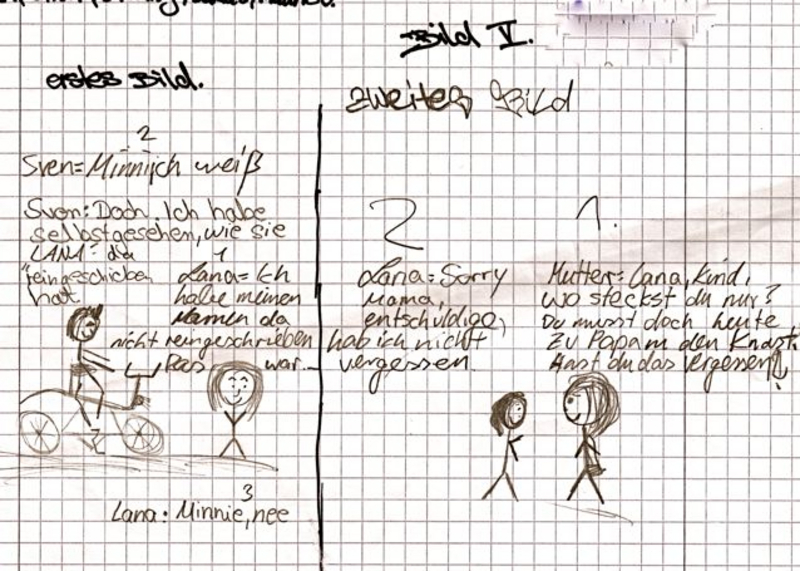 Bild V.
erstes Bild.
zweites Bild
2
Sven= Minnijch weiß
Sven: Doch. Ich habe
selbstgesehen, wie sie
LANA: da
reingeschieben
hat
1
Lana= Ich
habe meinen
Namen da
nicht reingeschrieben
Das war...
3
Lana: Minnie, nee
2
Lana= Sorry
Mama,
entschuldige,
hab ich nicht
vergessen.
1.
Mutter= Lana, Kind,
wo steckst du nur?
Du musst doch heute
zu Papa in den Knast.
Hast du das vergessen?